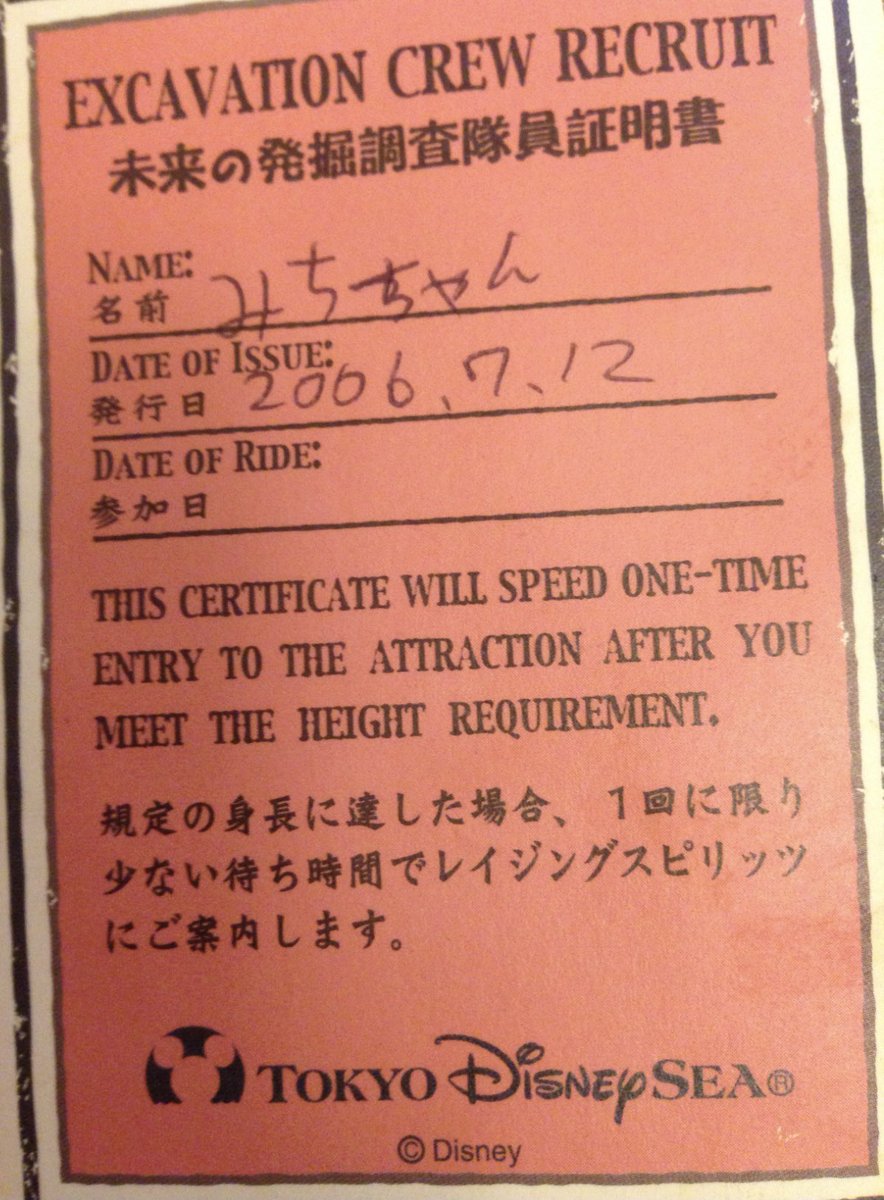 EXCAVATION CREW RECRUIT
未来の発掘調査隊員証明書
NAME:
名前 みちちゃん
DATE OF ISSUE:
発行日 2006.7.12
DATE OF RIDE:
参加日
THIS CERTIFICATE WILL SPEED ONE-TIME
ENTRY TO THE ATTRACTION AFTER YOU
MEET THE HEIGHT REQUIREMENT.
規定の身長に達した場合、1回に限り
少ない待ち時間でレイジングスピリッツ
にご案内します。
TOKYO DISNEY SEA®
© Disney